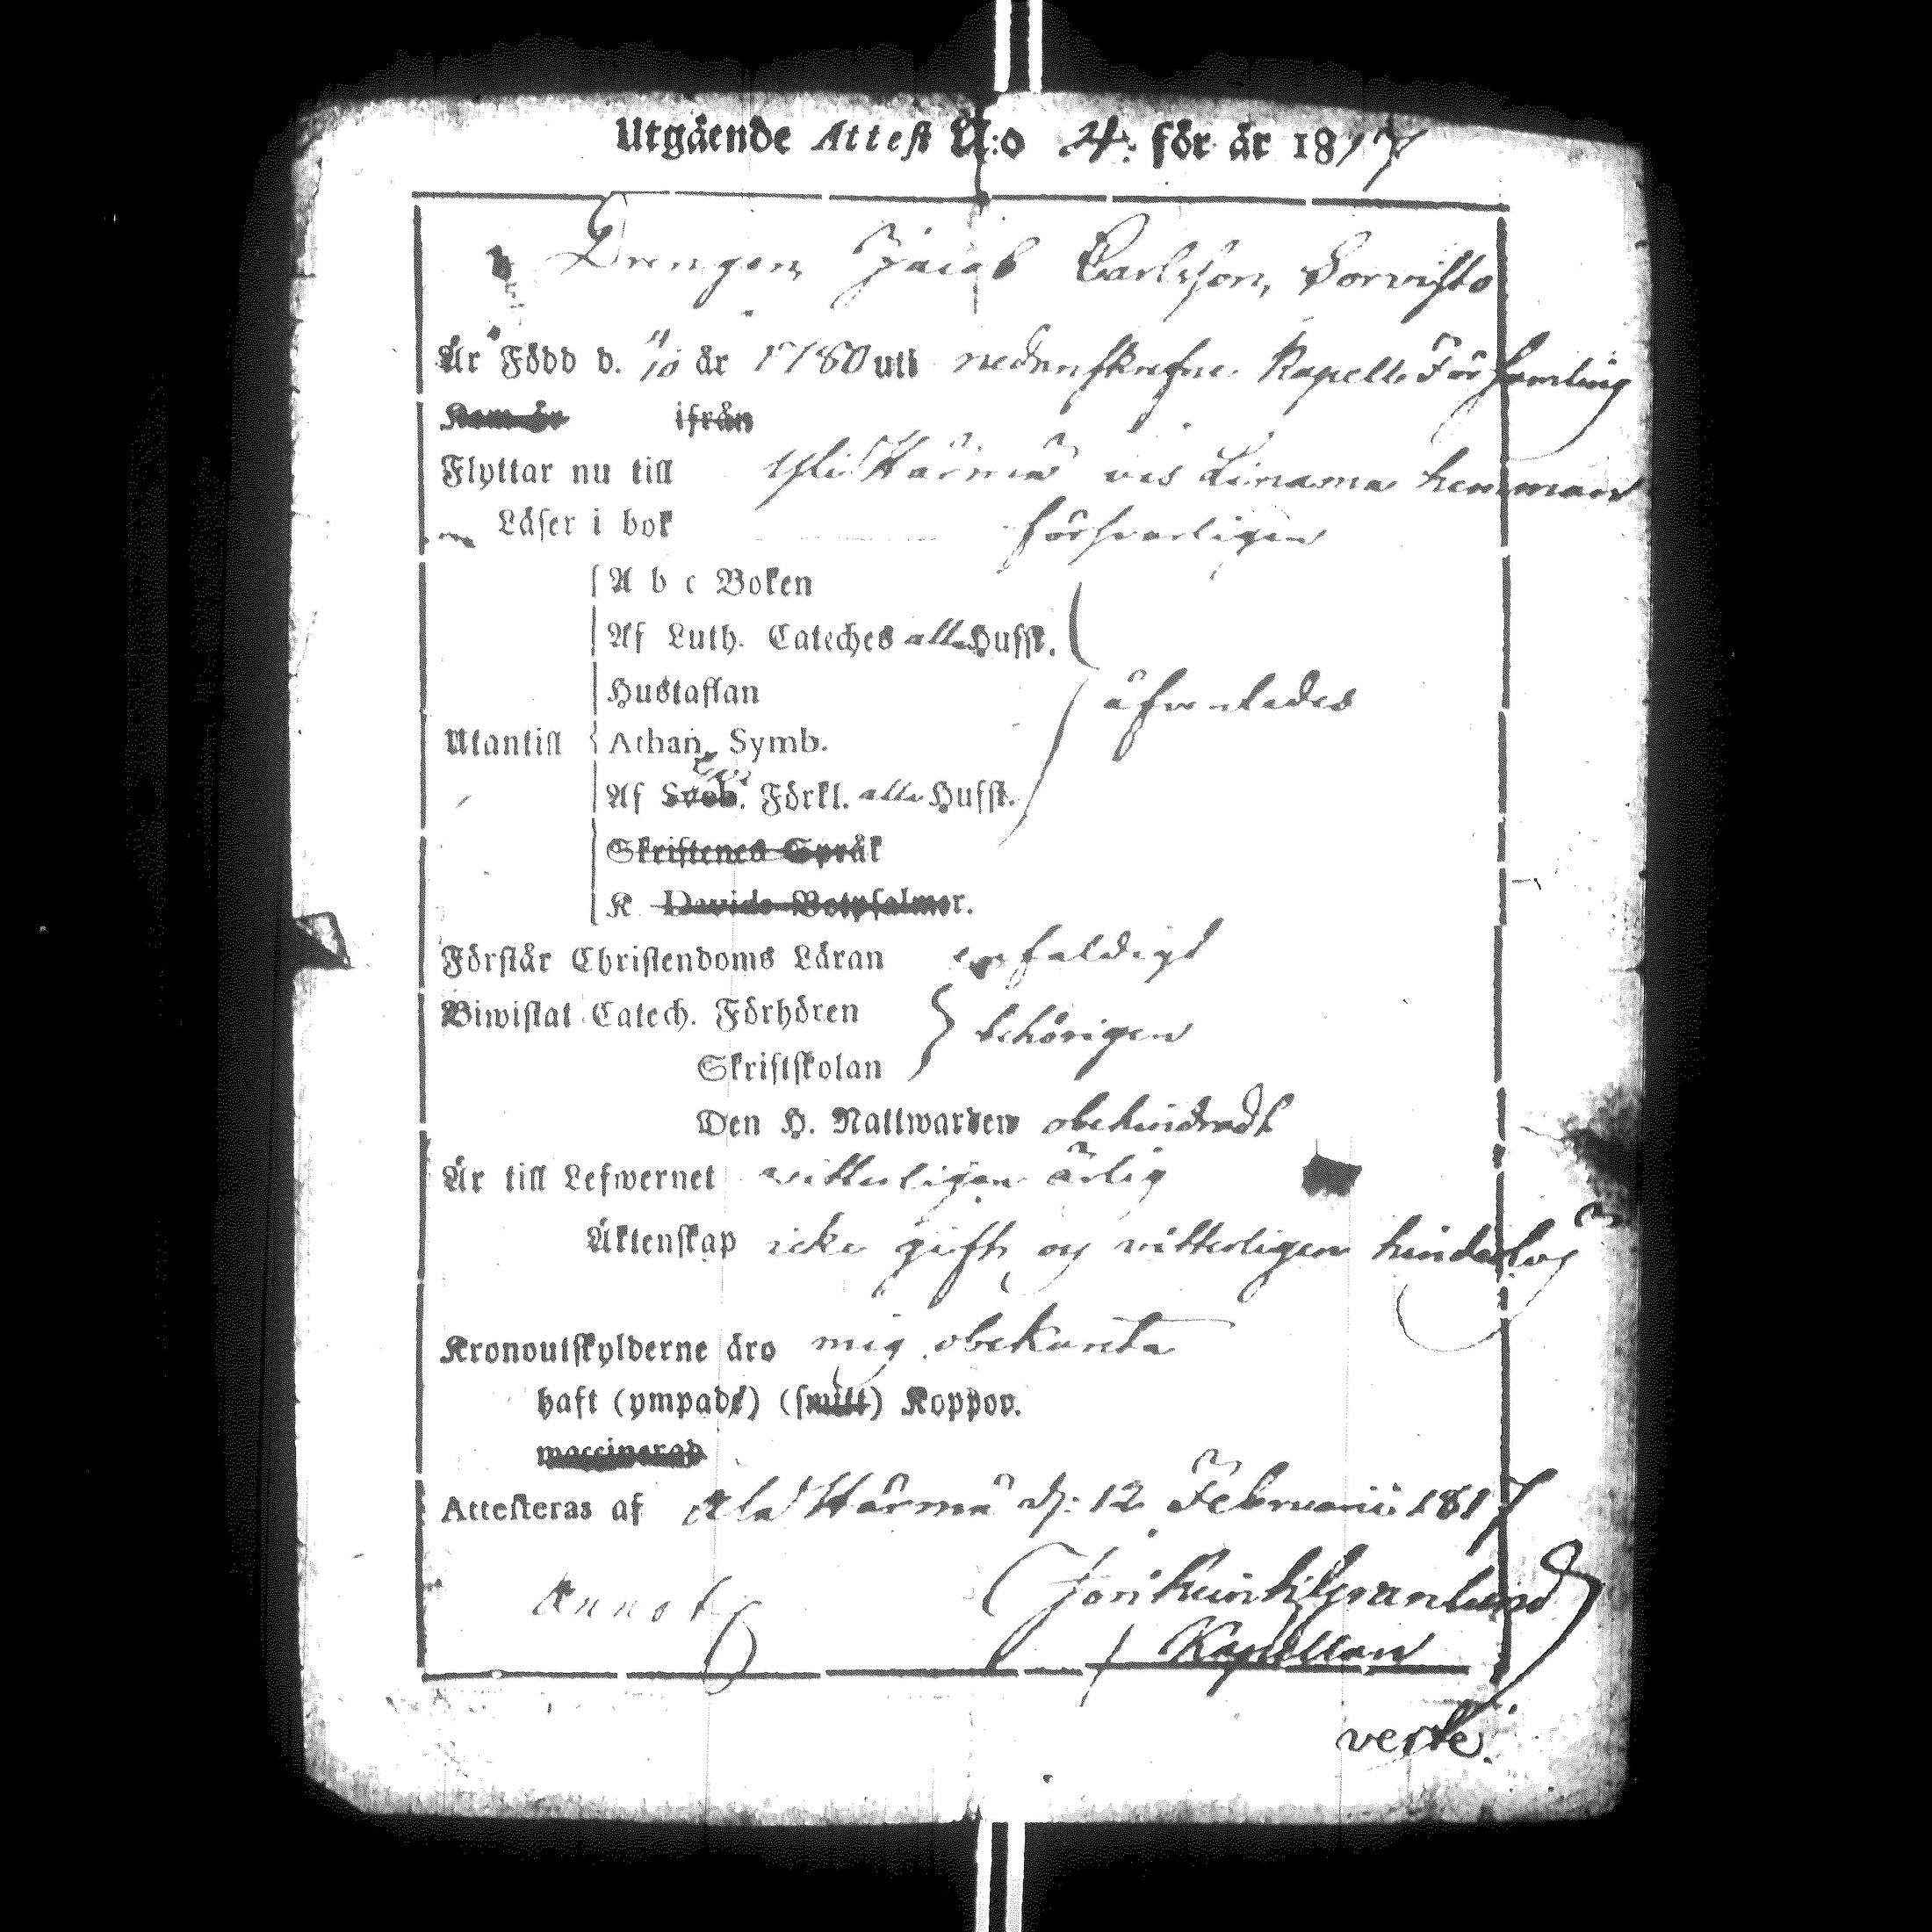 Utgående Attest N:o 4: för år 1817
Drengen Jacob Carlsson Sorvisto
Är Född d. 11/10 år 1780 uti nedanskrefne Kapells Församling
Kom år ifrån
Flyttar nu till Yli Härmä och Linama hemman
Läser i bok försvarligen
A b c Boken
Af Luth. Cateches alla Hufst.
Hustaflan
äfvenledes
Utantill Athan. Symb.
Af Sveb. Förkl. alla Hufst.
Skriftenes Språk
K Davids Botpsalmer.
Förstår Christendoms Läran enfaldigt
Biwistat Catech. Förhören
behörigen
Skriftskolan
Den H. Nattwarden obehindradt
Är till Lefwernet vitterligen ärlig
Äktenskap icke gift, og vitterligen hinderlös
Kronoutskylderne äro mig obekanta
haft (ympade) (smitt) Koppor.
waccinerad
Attesteras af Ala Härmä d: 12 Februarii 1817
Annot Joh Heinr Granlund
Kapellan
verte.